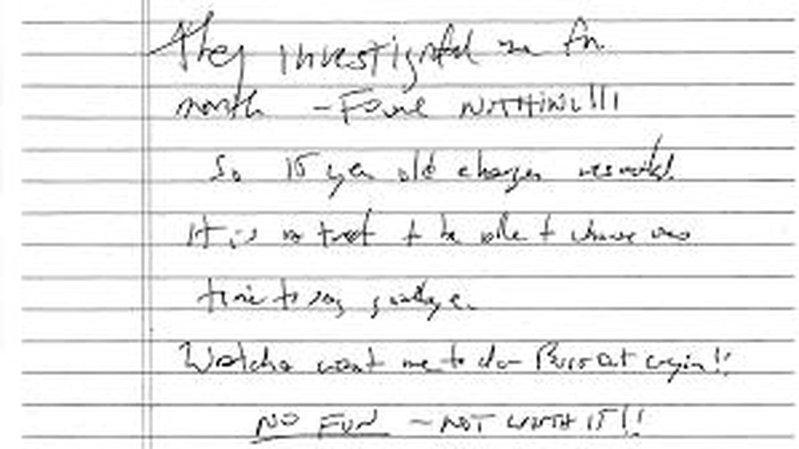 They investigated me for
month – Found NOTHING!!!
So 15 year old charges resulted.
It is a treat to be able to choose ones
time to say goodbye.
Watcha want me to do – Bust out cryin!!
NO FUN – NOT WORTH IT!!